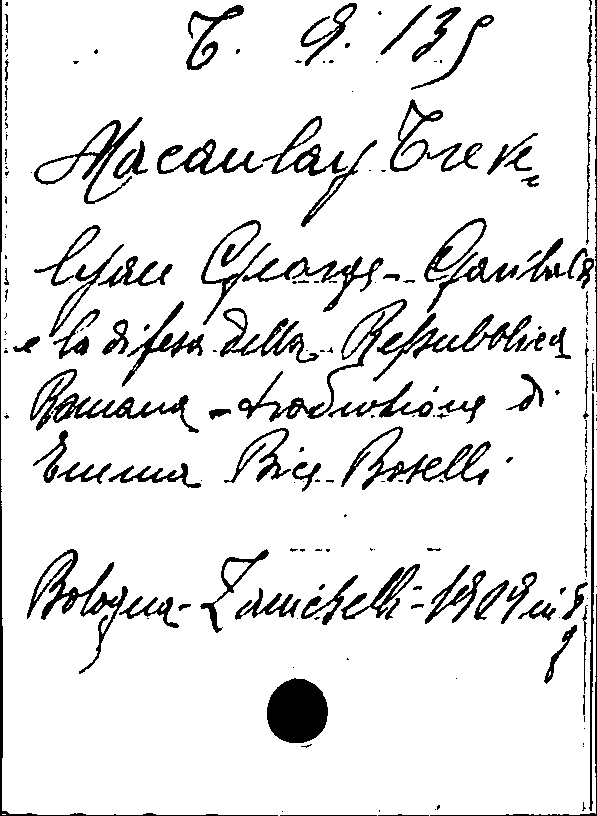 T. 9. 135
Macaulay Treve=
lyan George - Garibaldi
e la difesa della Repubblica
Romana - traduzione di
Emma Bice Boselli
Bologna - Zanichelli - 1909 in 8